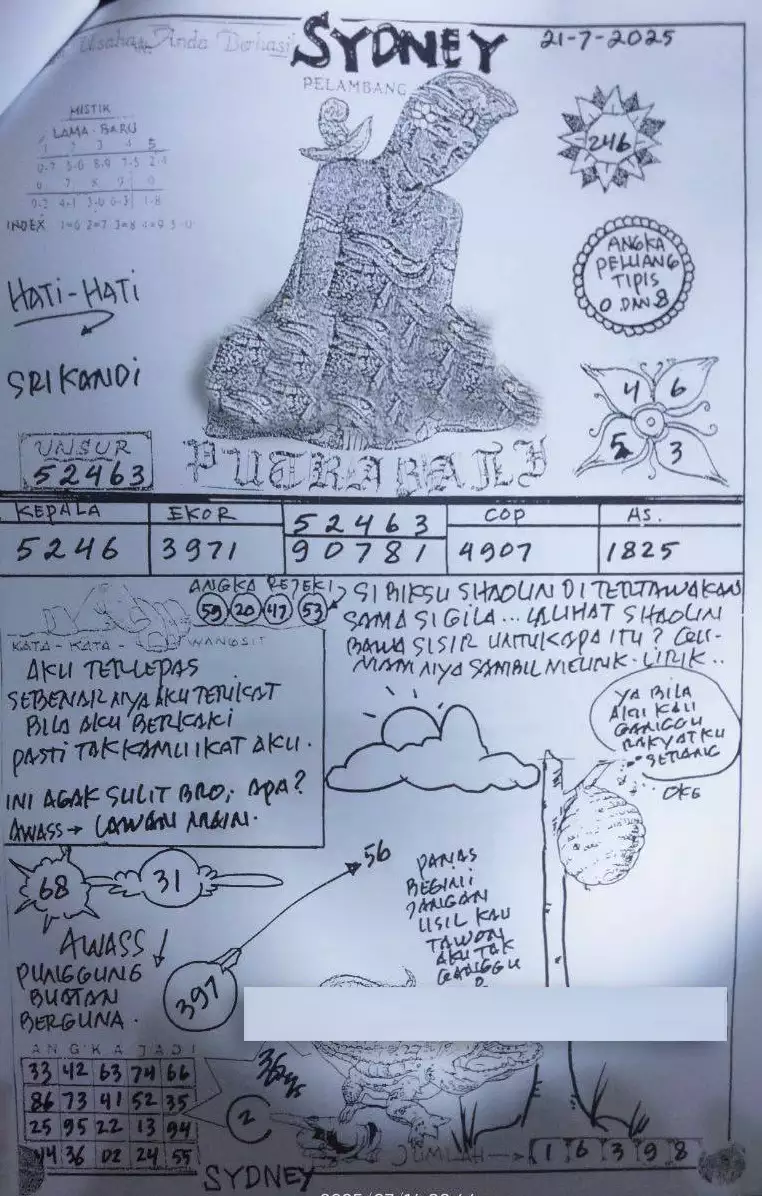 Usaha Anda Berhasil
SYDNEY
21-7-2025
PELAMBANG
MISTIK
LAMA-BARU
1 2 3 4 5
0-7 5-0 8-9 7-5 2-4
6 7 8 9 0
INDEX 1=6 2=7 3=8 4=9 5=0
246
ANGKA
PELUANG
TIPIS
0 DAN 8
HATI-HATI
SRIKANDI
UNSUR
52463
4 6
5 3
PUTRABALI
KEPALA
5246
EKOR
3971
52463
90781
COP
4907
AS.
1825
ANGKA REJEKI
59 20 47 53
SI BIKSU SHAOLIN DI TERTAWAKAN
SAMA SI GILA... LALIHAT SHAOLIN
BAWA SISIR UNTUK APA ITU?
SAMBIL MELIRIK-LIRIK..
KATA-KATA-WANGSIT
AKU TERLEPAS
SEBENARNYA AKU TERIKAT
BILA AKU BERKAKI
PASTI TAK KAMU IKAT AKU.
INI AGAK SULIT BRO, APA?
AWASS→ LAWAN MAIN.
YA BILA
AKU KAU
GANGGU
RAKYATKU
SERANG
OKE
68
31
56
PANAS
BEGINI
JANGAN
USIL KAU
TAWON
AKU TAK
GANGGU
AWASS
PUNGGUNG
BUATAN
BERGUNA.
397
ANGKA JADI
33 42 63 74 66
86 73 41 52 35
25 95 22 13 94
44 36 02 24 55
2
JUMLAH→ 1 6 3 9 8
SYDNEY